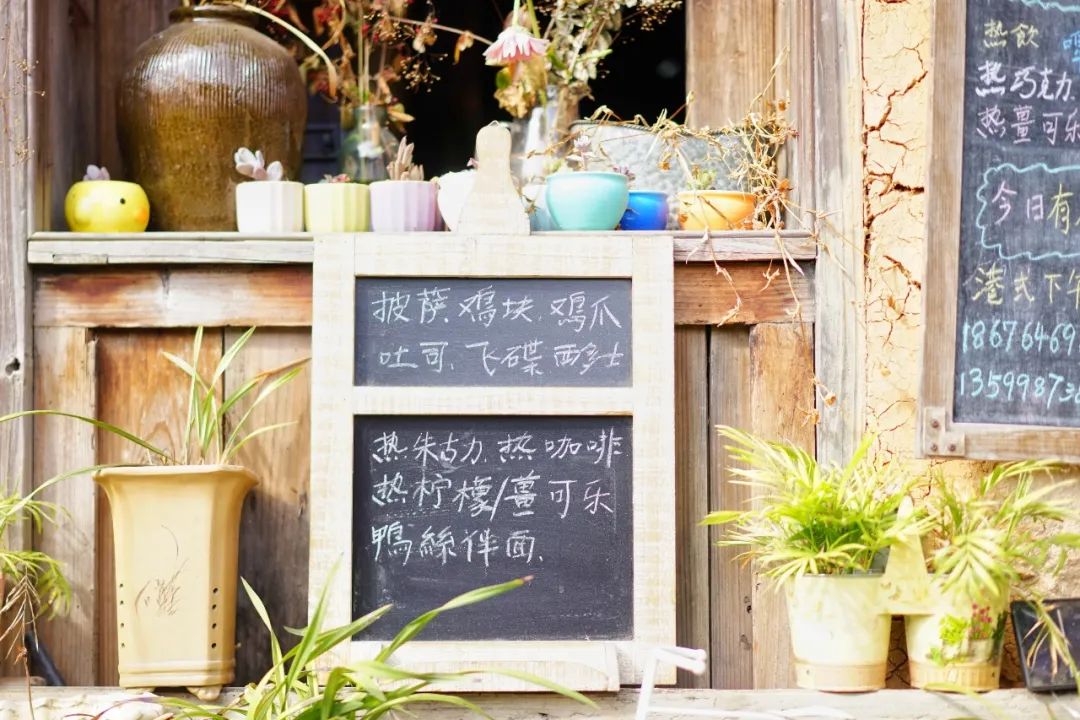 披萨.鸡块.鸡爪
吐司.飞碟 西多士
热朱古力.热咖啡
热柠檬/薑可乐
鴨絲伴面.
热飲
热巧克力.
热薑可乐
今日有
港式下午
18676469
13599873